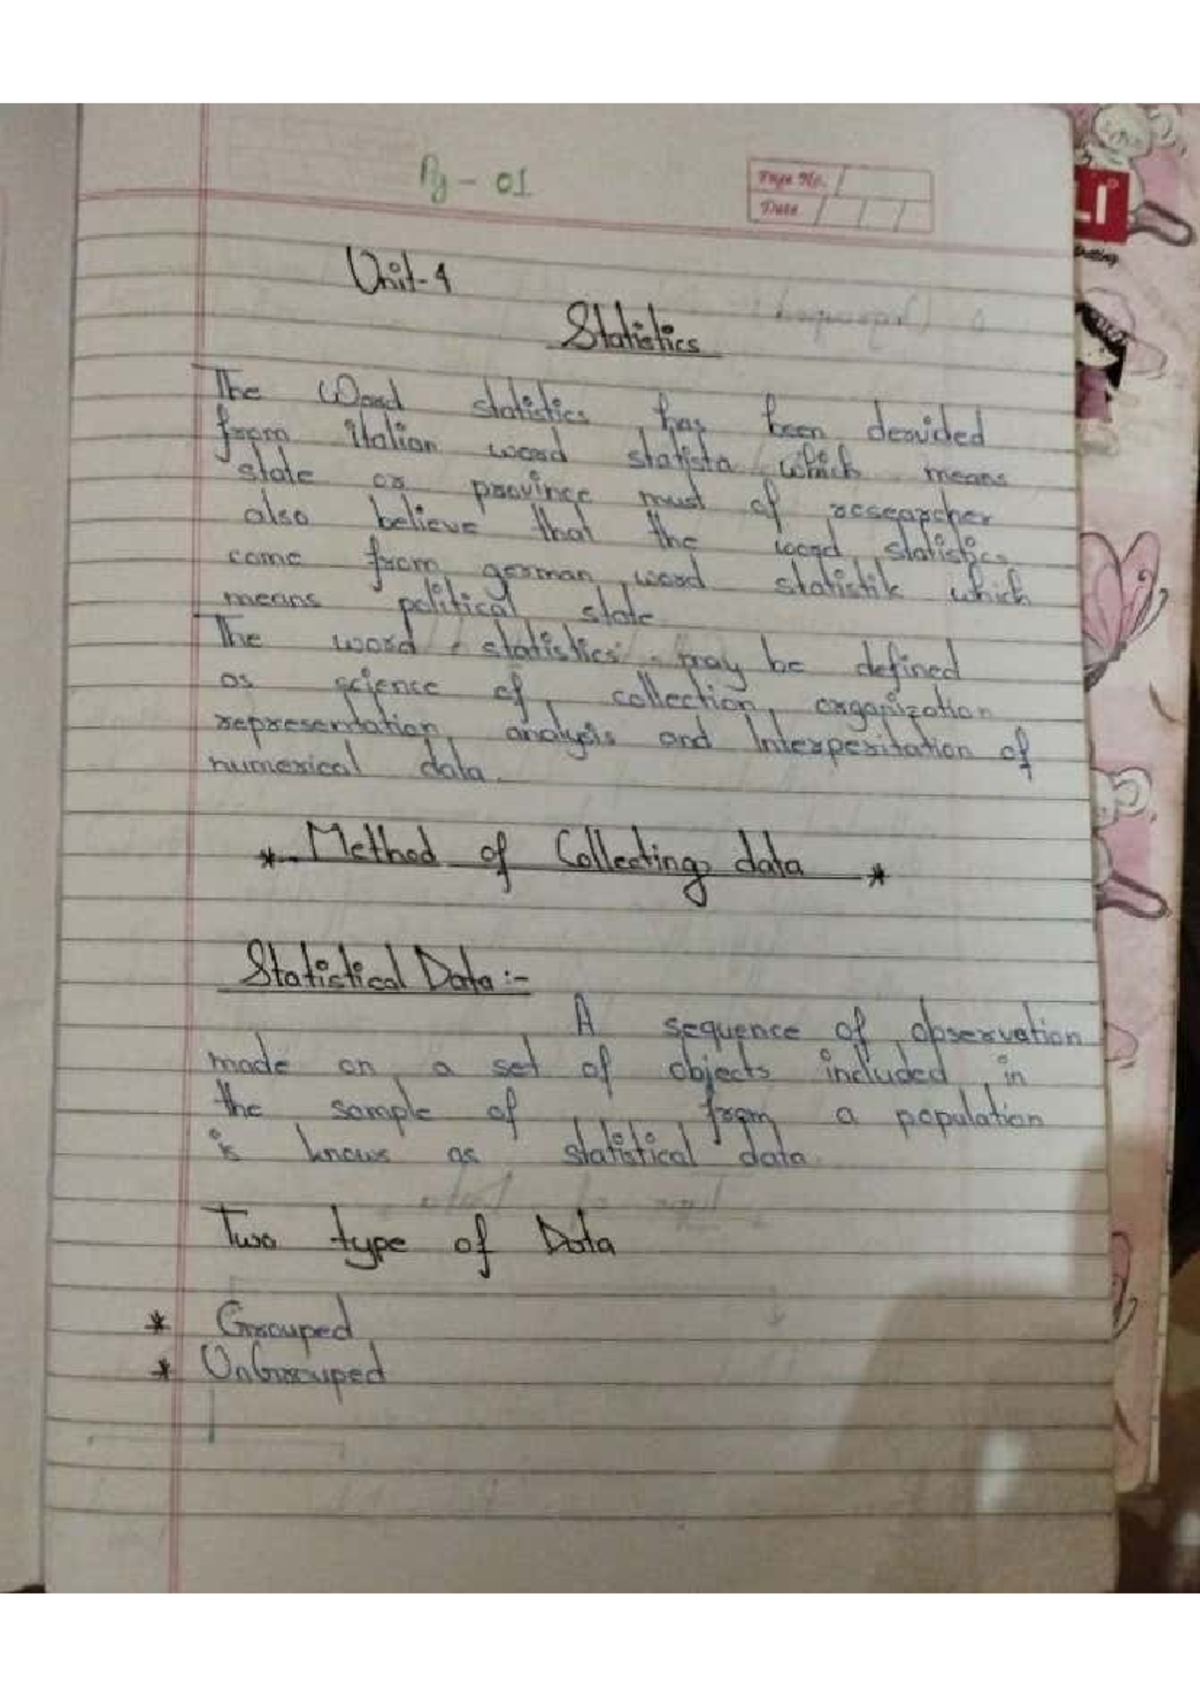 Pg - 01
Page No.
Date
Unit-4
Statistics
The Word statistics has been dervided
from italian word statista which means
state or province must of researcher
also believe that the word statistics
come from german word statistik which
means political state
The word "statistics" may be defined
as science of collection, organization
representation, analysis and Interperitation of
numerical data.
* Method of Collecting data *
Statistical Data :-
A sequence of observation
made on a set of objects included in
the sample of from a population
is knows as statistical data
Two type of Data
* Grouped
* UnGrouped